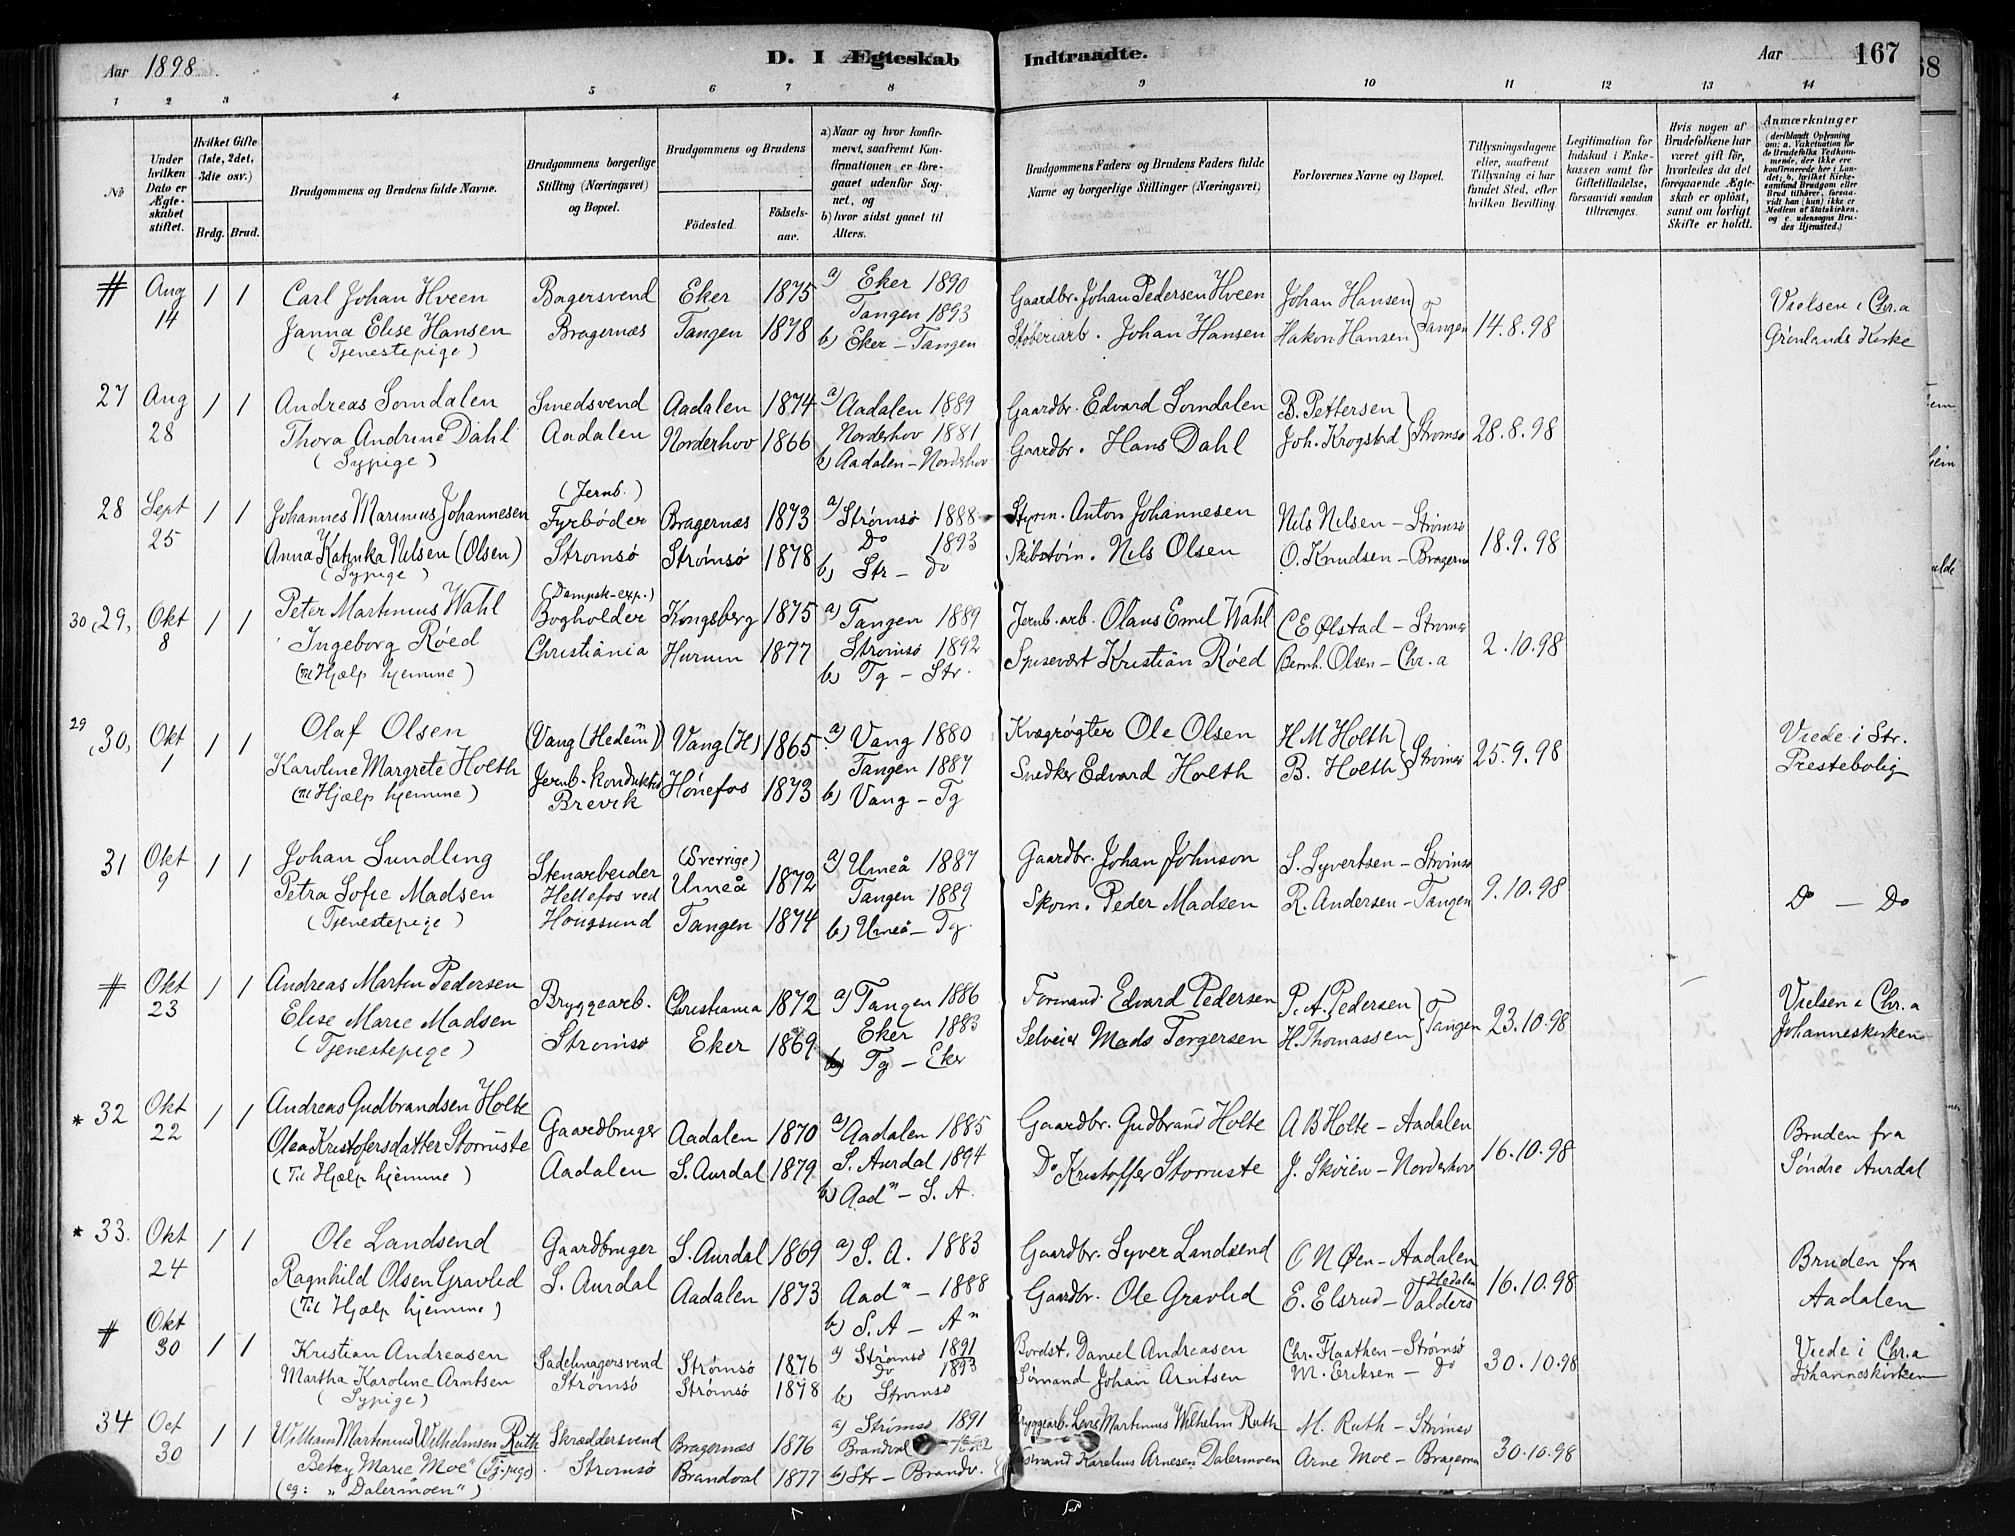 Aar 1898. D. I Ægteskab Indtraadte. Aar 167
1 2 3 4 5 6 7 8 9 10 11 12 13 14
No
Under hvilken Dato er Ægteskabet stiftet.
Hvilket Gifte (1ste, 2det, 3dte osv.)
Brdg. Brud.
Brudgommens og Brudens fulde Navne.
Brudgommens borgerlige Stilling (Næringsvei) og Bopæl.
Brudgommens og Brudens
Fødested. Fødselsaar.
a) Naar og hvor konfirmeret, saafremt Konfirmationen er foregaaet udenfor Sognet, og
b) hvor sidst gaaet til Alters.
Brudgommens Faders og Brudens Faders fulde Navne og borgerlige Stillinger (Næringsvei)
Forlovernes Navne og Bopæl.
Tillysningsdagene eller, saafremt Tillysning ei har fundet Sted, efter hvilken Bevilling.
Legitimation for Indskud i Enkekassen samt for Giftetilladelse, forsaavidt saadan tiltrænges.
Hvis nogen af Brudefolkene har været gift før, hvorledes da det foregaaende Ægteskab er opløst, samt om lovligt Skifte er holdt.
Anmærkninger (deriblandt Oplysning om: a. Vakcination for de Brudefolks Vedkommende, der ikke ere konfirmerede her i Landet; b. hvilket Kirkesamfund Brudgom eller Brud tilhører, forsaavidt han (hun) ikke er Medlem af Statskirken, og c. udensogns Brudes Hjemsted.)
# Aug 14 1 1 Carl Johan Hveen Bagersvend Eker 1875 a) Eker 1890 Gaardbr. Johan Pedersen Hveen Johan Hansen 14.8.98 Vielsen i Chr.a
Janna Elise Hansen Bragernæs Tangen 1878 Tangen 1893 Støberiarb. Johan Hansen Hakon Hansen } Tangen Grønlands Kirke
(Tjenestepige) b) Eker - Tangen
27 Aug 28 1 1 Andreas Somdalen Smedsvend Aadalen 1874 a) Aadalen 1889 Gaardbr. Edvard Somdalen B. Pettersen 28.8.98
Thora Andrine Dahl Aadalen Norderhov 1866 Norderhov 1881 Gaardbr. Hans Dahl Joh. Krogstad } Strømsø
(Sypige) b) Aadalen - Norderhov
28 Sept 25 1 1 Johannes Marinius Johannesen (Jernb.) Fyrbøder Bragernæs 1873 a) Strømsø 1888 Anton Johannesen Nils Nilsen - Strømsø 18.9.98
Anna Katinka Nilsen (Olsen) Strømsø Strømsø 1878 Do 1893 Nils Olsen O. Knudsen - Bragernæs
(Sypige) b) Str - Do
30 (29) Okt 8 1 1 Peter Martinius Wahl (Dampsk-exp.) Bogholder Kongsberg 1875 a) Tangen 1889 Jernb. arb. Olaus Emil Wahl C E Ølstad - Strømsø 2.10.98
Ingeborg Røed Christiania Hurum 1877 Strømsø 1892 Spisevært Kristian Røed Bernh. Olsen - Chr.a
(Til Hjælp hjemme) b) Tg - Str.
29 (30) Okt 1 1 1 Olaf Olsen (Vang (Hedem)) Vang (H) 1865 a) Vang 1880 Kvægrøgter Ole Olsen H M Holth 25.9.98 Viede i Str.
Karoline Margrete Holth Jernb-konduktør Brevik Hønefos 1873 Tangen 1887 Snedker Edvard Holth B. Holth } Strømsø Prestebolig
(Til Hjælp hjemme) b) Vang - Tg
31 Okt 9 1 1 Johan Sundling Stenarbeider (Sverrige) Umeå 1872 a) Umeå 1887 Gaardbr. Johan Johnson S. Syvertsen - Strømsø 9.10.98 Do - Do
Petra Sofie Madsen Hellefos ved Tangen 1874 Tangen 1889 Skom. Peder Madsen R. Andersen - Tangen
(Tjenestepige) Hougsund b) Umeå - Tg.
# Okt 23 1 1 Andreas Martin Pedersen Bryggearb. Christiania 1872 a) Tangen 1886 Formand Edvard Pedersen P. A. Pedersen 23.10.98 Vielsen i Chr.a
Elise Marie Madsen Strømsø Eker 1869 Eker 1883 Selveier Mads Torgersen H. Thomassen } Tangen Johanneskirken
(Tjenestepige) b) Tg - Eker
* 32 Okt 22 1 1 Andreas Gudbrandsen Holte Gaardbruger Aadalen 1870 a) Aadalen 1885 Gaardbr. Gudbrand Holte A B Holte - Aadalen 16.10.98 Bruden fra
Olea Kristofersdatter Storruste Aadalen S. Aurdal 1879 S. Aurdal 1894 Do Kristoffer Storruste J. Skøien - Norderhov Søndre Aurdal
(Til Hjælp hjemme) b) Aad" - S. A.
* 33. Okt 24 1 1 Ole Landsend Gaardbruger S. Aurdal 1869 a) S. A. 1883 Gaardbr. Syver Landsend O N Øen - Aadalen 16.10.98 Bruden fra
Ragnhild Olsen Gravlid S. Aurdal Aadalen 1873 Aad" - 1888 Gaardbr. Ole Gravlid E. Elsrud - Hedalen Valders Aadalen
(Til Hjælp hjemme) b) S. A - A"
# Okt 30 1 1 Kristian Andreasen Sadelmagersvend Strømsø 1876 a) Strømsø 1891 Bordst. Daniel Andreasen Chr. Flaathen - Strømsø 30.10.98 Viede i Chr.a
Martha Karoline Arntsen Strømsø Strømsø 1878 Do 1893 Sømand Johan Arntsen M. Eriksen - Do Johanneskirken
(Sypige) b) Strømsø
34 Oct 30 1 1 William Martinius Wilhelmsen Ruth Skræddersvend Bragernæs 1876 a) Strømsø 1891 Bryggearb. Lars Martinius Wilhelm Ruth M. Ruth - Strømsø 30.10.98
Betzy Marie Moe" (Tj.pige) Strømsø Brandval 1877 Brandval Karelius Arnesen Dalermoen Arne Moe - Bragernæs
(eg: "Dalermoen") b) Str - Brandv.